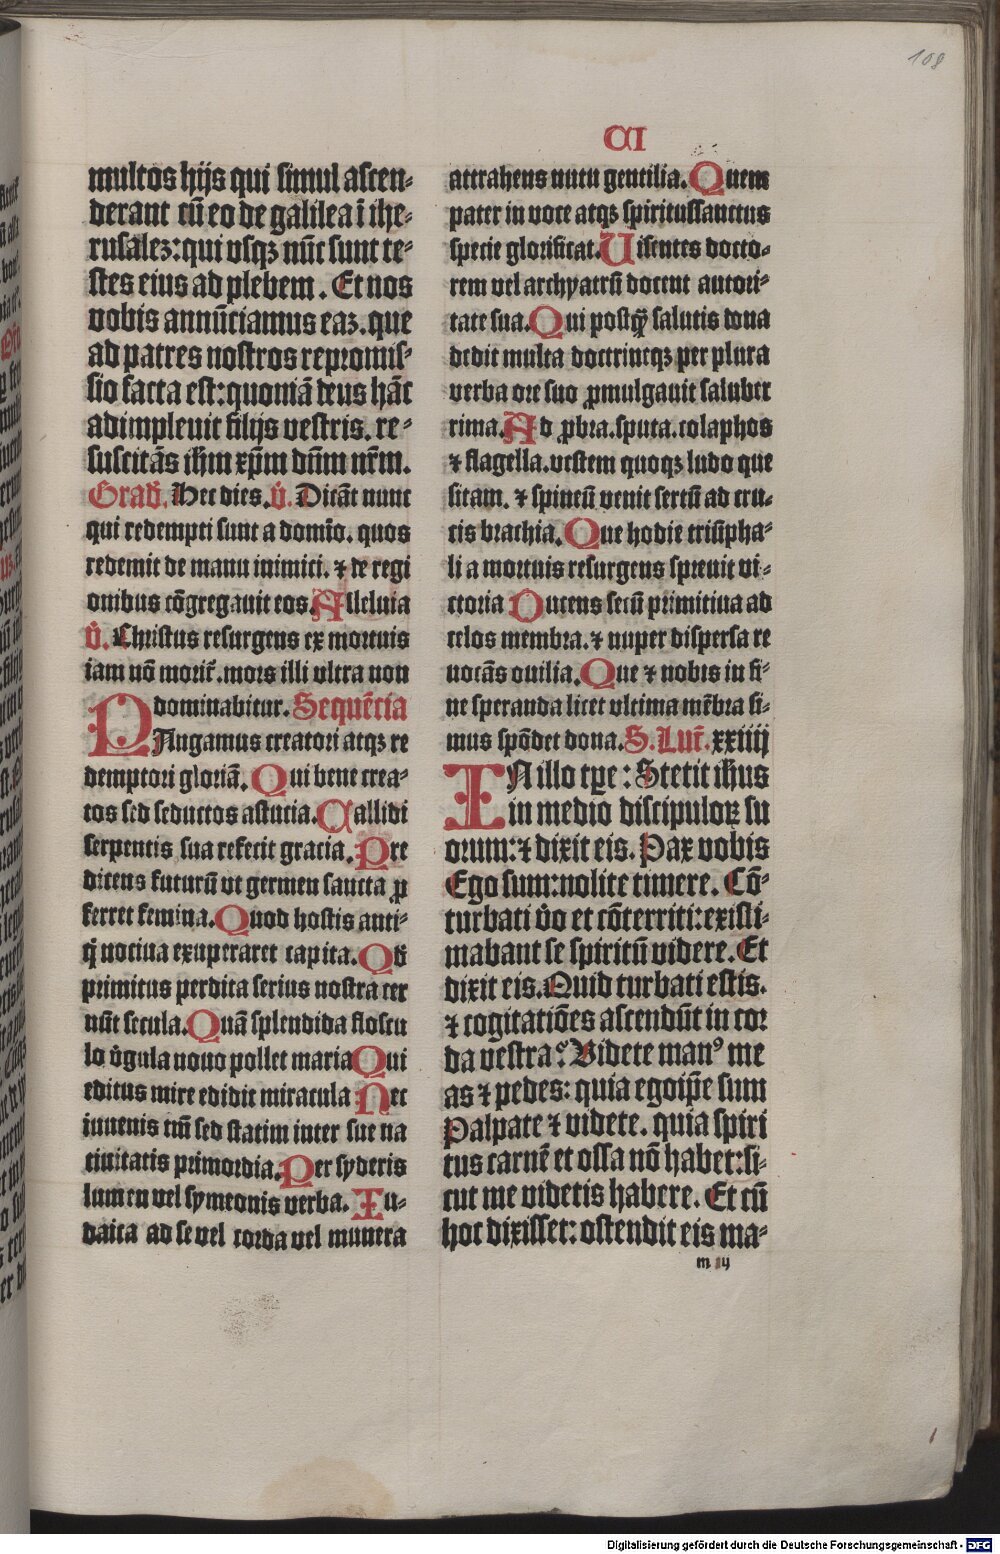 108
CI
multos hijs qui simul ascen-
derant cū eo de galilea ī ihe-
rusalez: qui vsqz nūc sunt te-
stes eius ad plebem. Et nos
vobis annūciamus eaz. que
ad patres nostros repromis-
sio facta est: quoniā deus hāc
adimpleuit filijs vestris. re-
suscitās ihm xp̄m dūm nr̄m.
Grad̄. Hec dies. v̄. Dicāt nunc
qui redempti sunt a domīo. quos
redemit de manu inimici. ⁊ de regi
onibus cōgregauit eos. Alleluia
v̄. Christus resurgens ex mortuis
iam nō morit̄. mors illi vltra non
dominabitur. Sequētia
PAngamus creatori atqz re
demptori gloriā. Qui bene crea-
tos sed seductos astucia. Callidi
serpentis sua refecit gracia. Pre
dicens futurū vt germen sancta p̲
ferret femina. Quod hostis anti-
q̄ nociua exuperaret capita. Qd̄
primitus perdita serius nostra cer
nūt secula. Quā splendida floscu
lo v̄gula nouo pollet maria Qui
editus mire edidit miracula Nec
iuuenis tm̄ sed statim inter sue na
tiuitatis primordia. Per syderis
lumen vel symeonis verba. Iu-
daica ad se vel corda vel munera
attrahens nutu gentilia. Quem
pater in voce atqz spiritussanctus
specie glorificat. Uisentes docto-
rem vel archyatrū docent autori-
tate sua. Qui postq̄ salutis dona
dedit multa doctrineqz per plura
verba ore suo p̲mulgauit saluber
rima. Ad p̲bra. sputa. colaphos
⁊ flagella. vestem quoqz ludo que
sitam. ⁊ spineū venit sertū ad cru-
cis brachia. Que hodie trisipha-
li a mortuis resurgens spreuit vi-
ctoria Ducens secū primitiua ad
celos membra. ⁊ nuper dispersa re
uocās ouilia. Que ⁊ nobis in fi-
ne speranda licet vltima mēbra si-
mus spōdet dona. S. Luc̄. xxiiij
IN illo tp̄e: Stetit ihus
in medio discipuloꝝ su
orum: ⁊ dixit eis. Pax vobis
Ego sum: nolite timere. Cō-
turbati v̄o et cōterriti: existi-
mabant se spiritū videre. Et
dixit eis. Quid turbati estis.
⁊ cogitatiōes ascendūt in cor
da vestra? Videte manꝰ me
as ⁊ pedes: quia ego ip̄e sum
Palpate ⁊ videte. quia spiri
tus carnē et ossa nō habet: si-
cut me videtis habere. Et cū
hoc dixisset: ostendit eis ma-
m ij
Digitalisierung gefördert durch die Deutsche Forschungsgemeinschaft - DFG